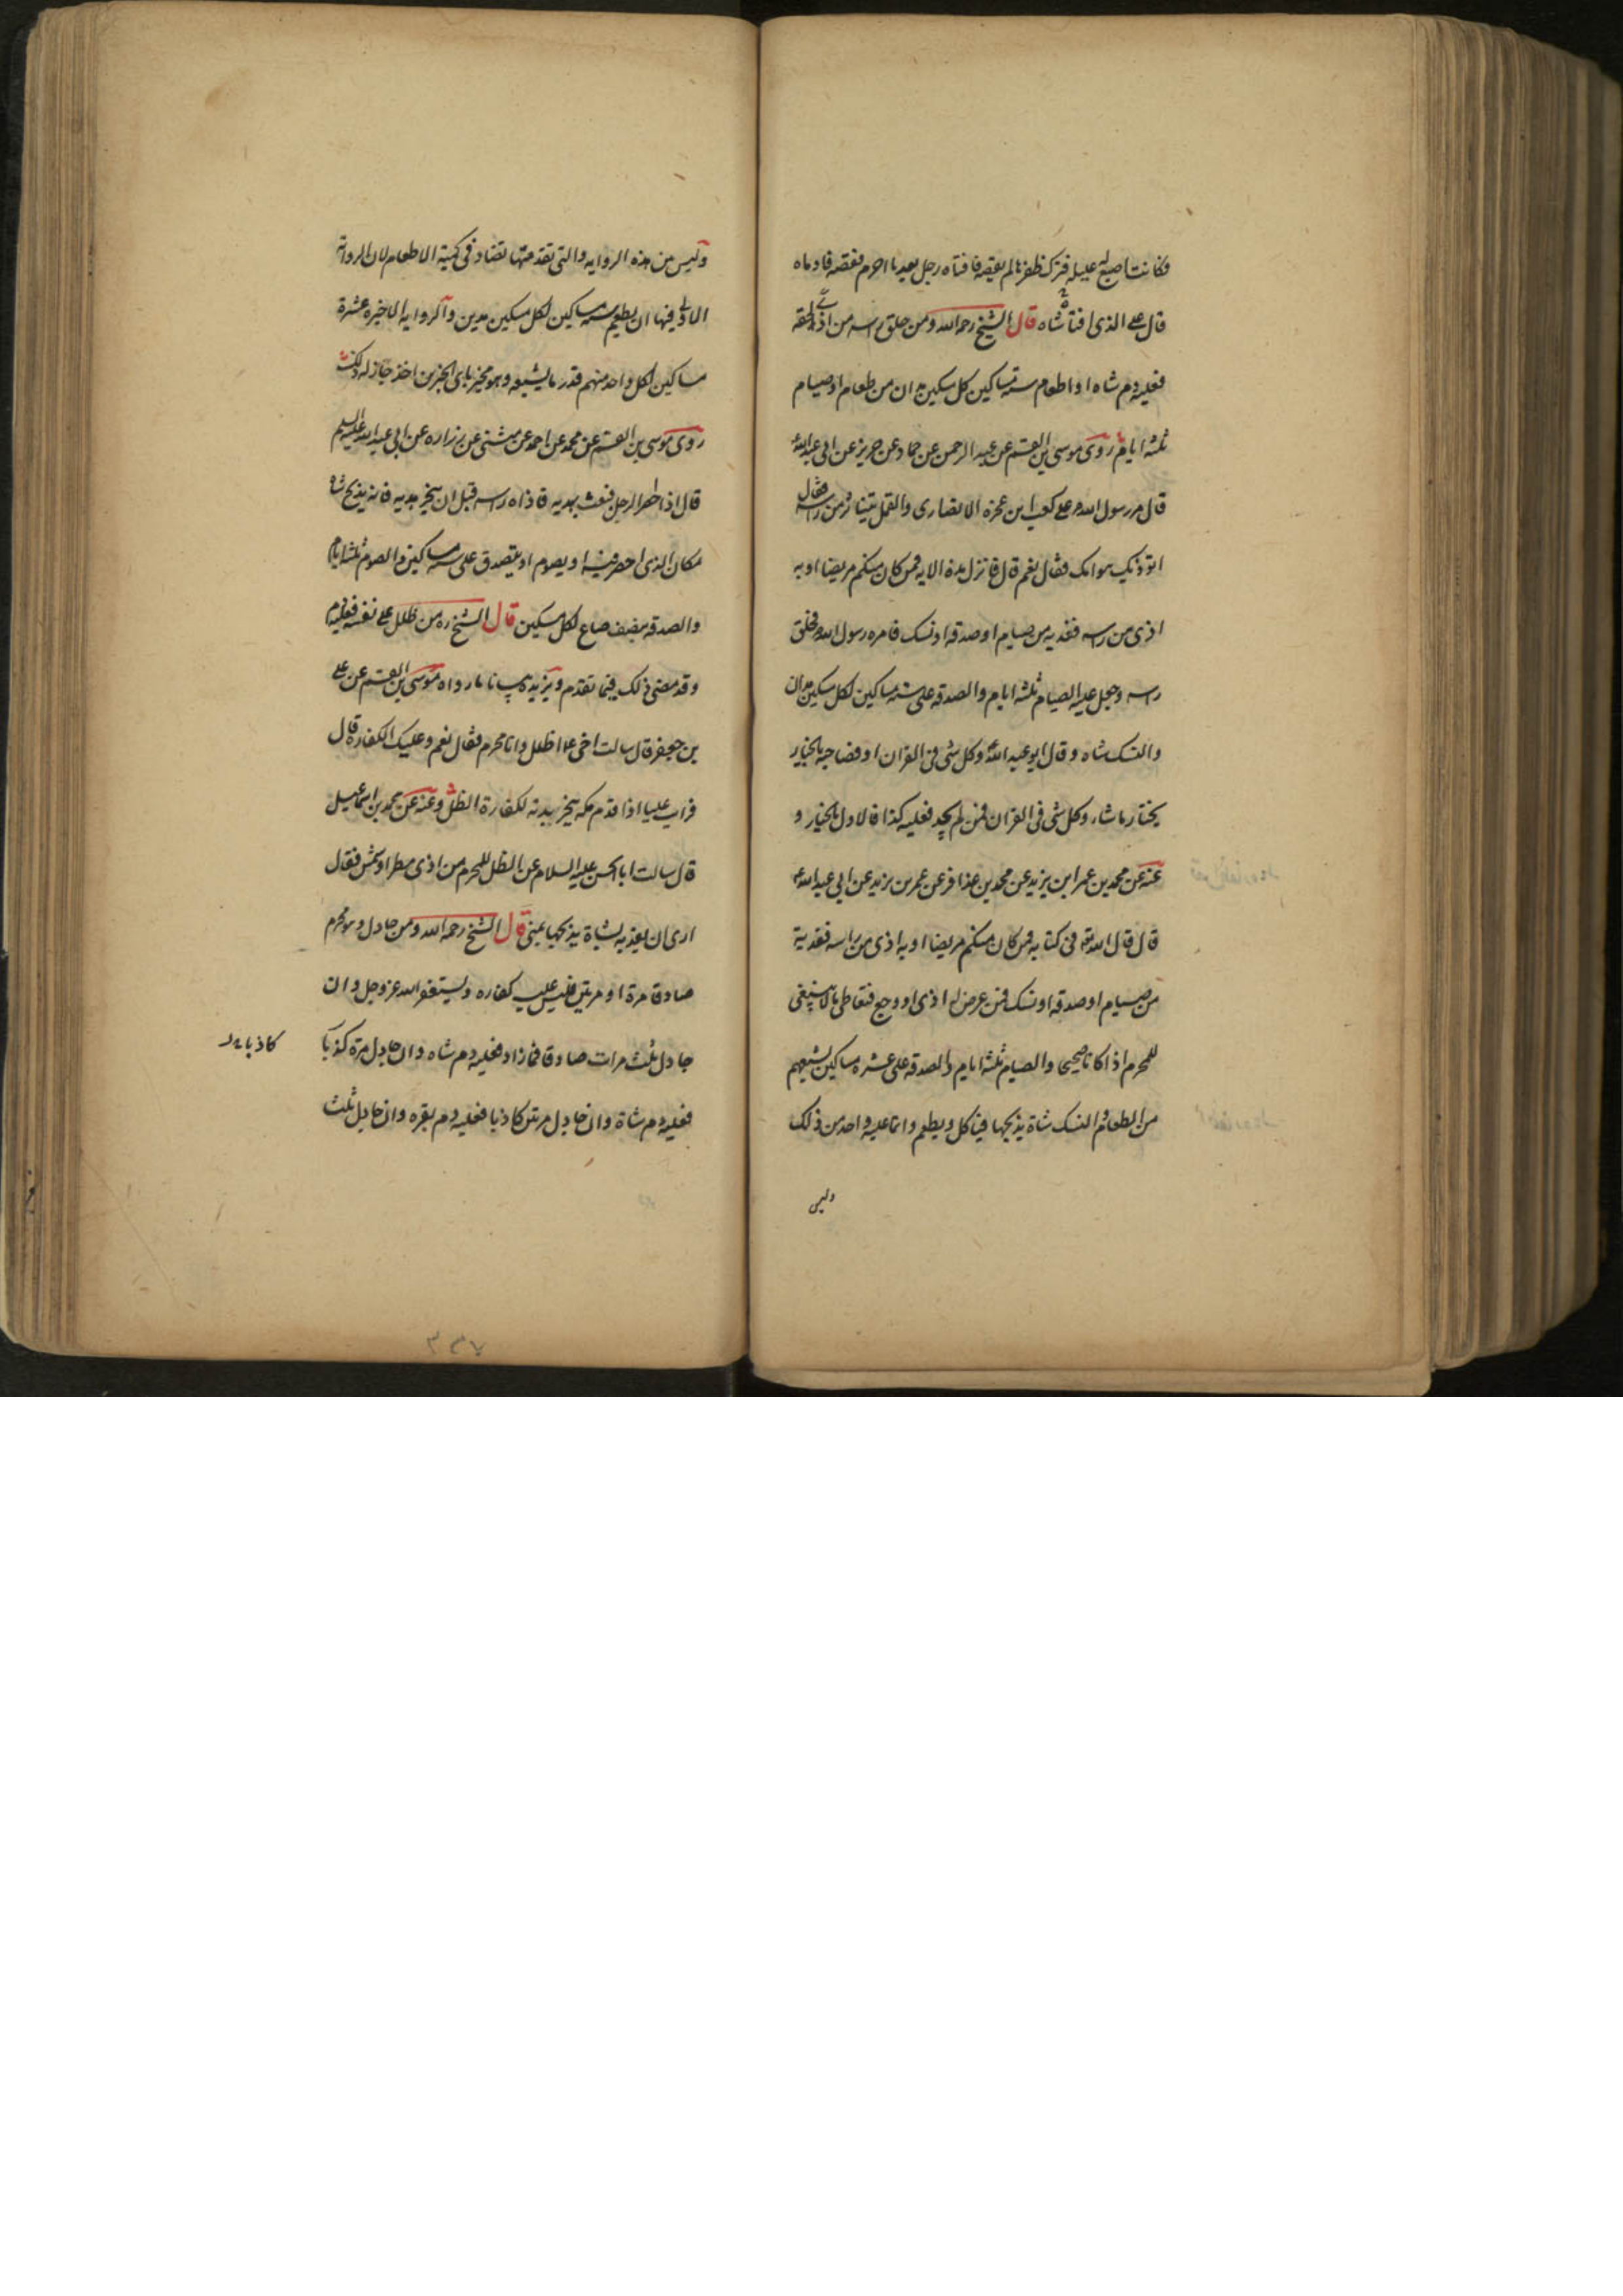 فكانت اصبع له عليله فترك ظفرها لم يقصه فافتاه رجل بعد ما احرم فقصه فادماه
قال على الذى افتاه شاه قال الشيخ رحمه الله ومن حلق راسه من اذى لحقه
فعليه دم شاه او اطعام سته مساكين كل مسكين مدان من طعام او صيام
ثلثه ايام روى موسى بن القسم عن عبد الرحمن عن حماد عن حريز عن ابى عبد الله ع
قال مر رسول الله ص على كعب ابن عجزه الانصارى والقمل يتناثر من راسه فقال
اتوذيك هوامك فقال نعم قال فانزل هذه الايه فمن كان منكم مريضا او به
اذى من راسه ففديه من صيام او صدقه او نسك فامره رسول الله ص فحلق
راسه وجعل عليه الصيام ثلثه ايام والصدقه على سته مساكين لكل مسكين مدان
والنسك شاه وقال ابو عبد الله ع وكل شى فى القران او فصاحبه بالخيار
يختار ما شاء وكل شى فى القران فمن لم يجد فعليه كذا فالاول بالخيار و
عنه عن محمد بن عمر ابن يزيد عن محمد بن عذافر عن عمر بن يزيد عن ابى عبد الله ع
قال قال الله تع فى كتابه فمن كان منكم مريضا او به اذى من راسه ففدية
من صيام او صدقه او نسك فمن عرض له اذى او وجع فتعاطى ما لا ينبغى
للمحرم اذا كان صحيحا والصيام ثلثه ايام والصدقه على عشره مساكين يشبعهم
من الطعام والنسك شاة يذبحها فياكل ويطعم وانما عليه واحد من ذلك
وليس
وليس من هذه الروايه والتى تقدمتها تضاد فى كمية الاطعام لان الرواية
الاولى فيها ان يطعم سته مساكين لكل مسكين مدين والروايه الاخيره عشرة
مساكين لكل واحد منهم قدر ما يشبعه وهو مخير باى الخبرين اخذ جاز له ذلك
روى موسى بن القسم عن محمد عن احمد عن مثنى عن زراره عن ابى عبد الله عليه السلم
قال اذا احصر الرجل فبعث بهديه فاذاه راسه قبل ان ينحر هديه فانه يذبح شاه
مكان الذى احصر فيه او يصوم او يتصدق على سته مساكين والصوم ثلثه ايام
والصدقه نصف صاع لكل مسكين قال الشيخ ره من ظلل على نفسه فعليه دم
وقد مضى ذلك فيما تقدم ويزيده بيانا ما رواه موسى بن القسم عن على
بن جعفر قال سالت اخى ع اظلل وانا محرم فقال نعم وعليك الكفاره قال
فرايت عليا اذا قدم مكه ينحر بدنه لكفارة الظل وعنه عن محمد بن اسمعيل
قال سالت ابا الحسن عليه السلام عن الظل للمحرم من اذى مطر او شمس فقال
ارى ان يفديه بشاة يذبحها بمنى قال الشيخ رحمه الله ومن جادل وهو محرم
صادقا مرة او مرتين فليس عليه كفاره وليستغفر الله عز وجل وان
جادل ثلث مرات صادقا فما زاد فعليه دم شاه وان جادل مرة كذبا
كاذبا بدل
فعليه دم شاة وان جادل مرتين كاذبا فعليه دم بقره وان جادل ثلث